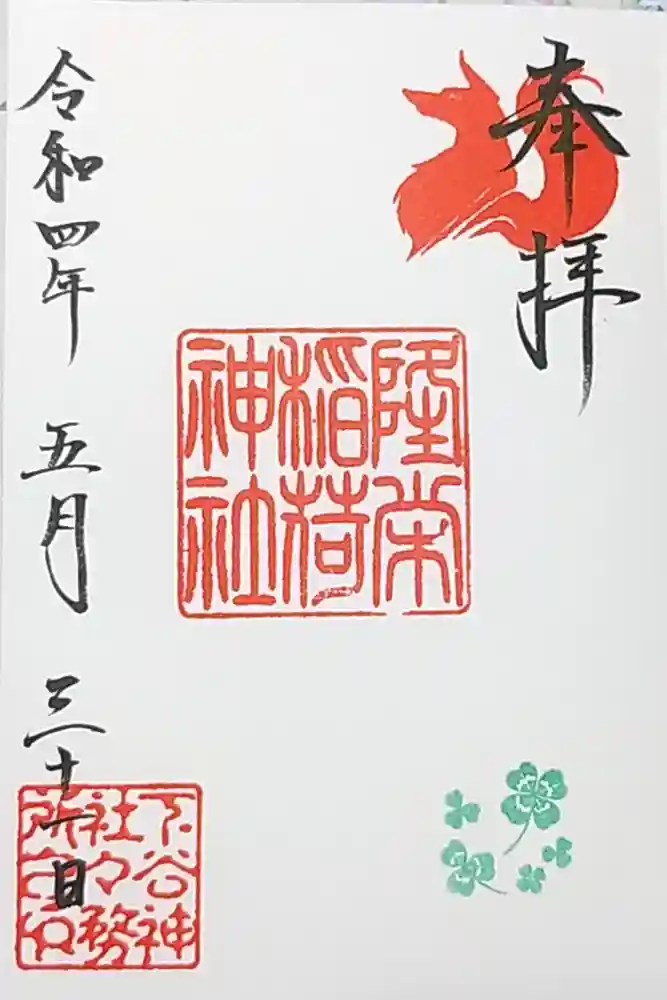 奉拝
隆栄
稲荷
神社
令和四年 五月 三十一日
下谷神
社々務
所之印